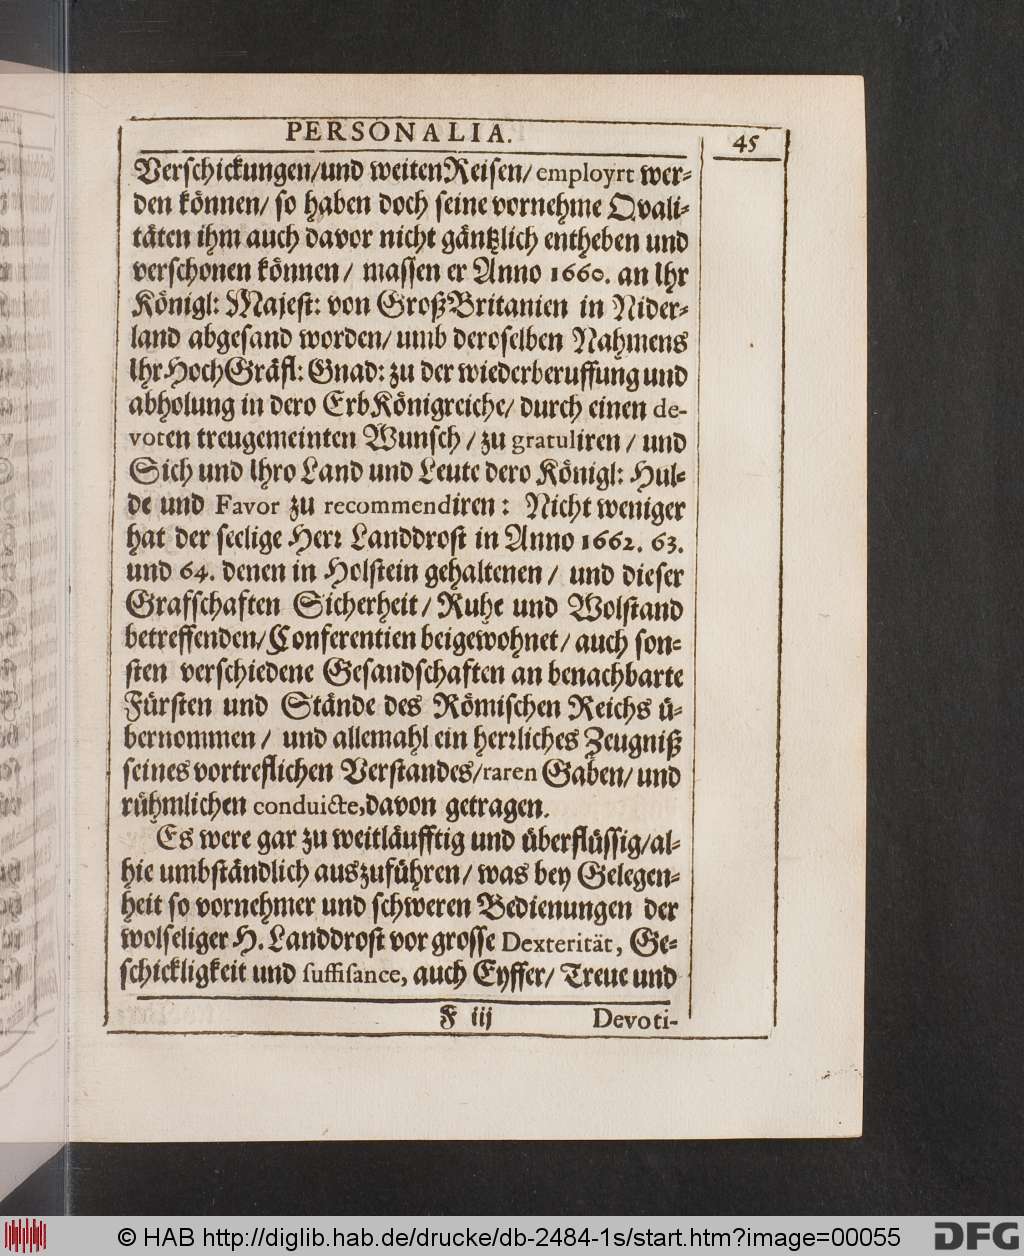 PERSONALIA.
45
Verschickungen/und weitenReisen/ employrt wer-
den können/ so haben doch seine vornehme Qvali-
täten ihm auch davor nicht gäntzlich entheben und
verschonen können/ massen er Anno 1660. an Ihr
Königl: Majest: von GroßBritanien in Nider-
land abgesand worden/ umb deroselben Nahmens
Ihr HochGräfl: Gnad: zu der wiederberuffung und
abholung in dero ErbKönigreiche/ durch einen de-
voten treugemeinten Wunsch / zu gratuliren / und
Sich und Ihro Land und Leute dero Königl: Hul-
de und Favor zu recommendiren : Nicht weniger
hat der seelige Herr Landdrost in Anno 1662. 63.
und 64. denen in Holstein gehaltenen / und dieser
Grafschaften Sicherheit/ Ruhe und Wolstand
betreffenden/Conferentien beigewohnet/ auch son-
sten verschiedene Gesandschaften an benachbarte
Fürsten und Stände des Römischen Reichs ü-
bernommen / und allemahl ein herrliches Zeugniß
seines vortreflichen Verstandes/raren Gaben/ und
rühmlichen conduicte,davon getragen.
Es were gar zu weitläufftig und überflüssig/al-
hie umbständlich auszuführen/ was bey Gelegen-
heit so vornehmer und schweren Bedienungen der
wolseliger H. Landdrost vor grosse Dexterität, Ge-
schickligkeit und suffisance, auch Eyffer/ Treue und
F iij Devoti-
© HAB http://diglib.hab.de/drucke/db-2484-1s/start.htm?image=00055
DFG